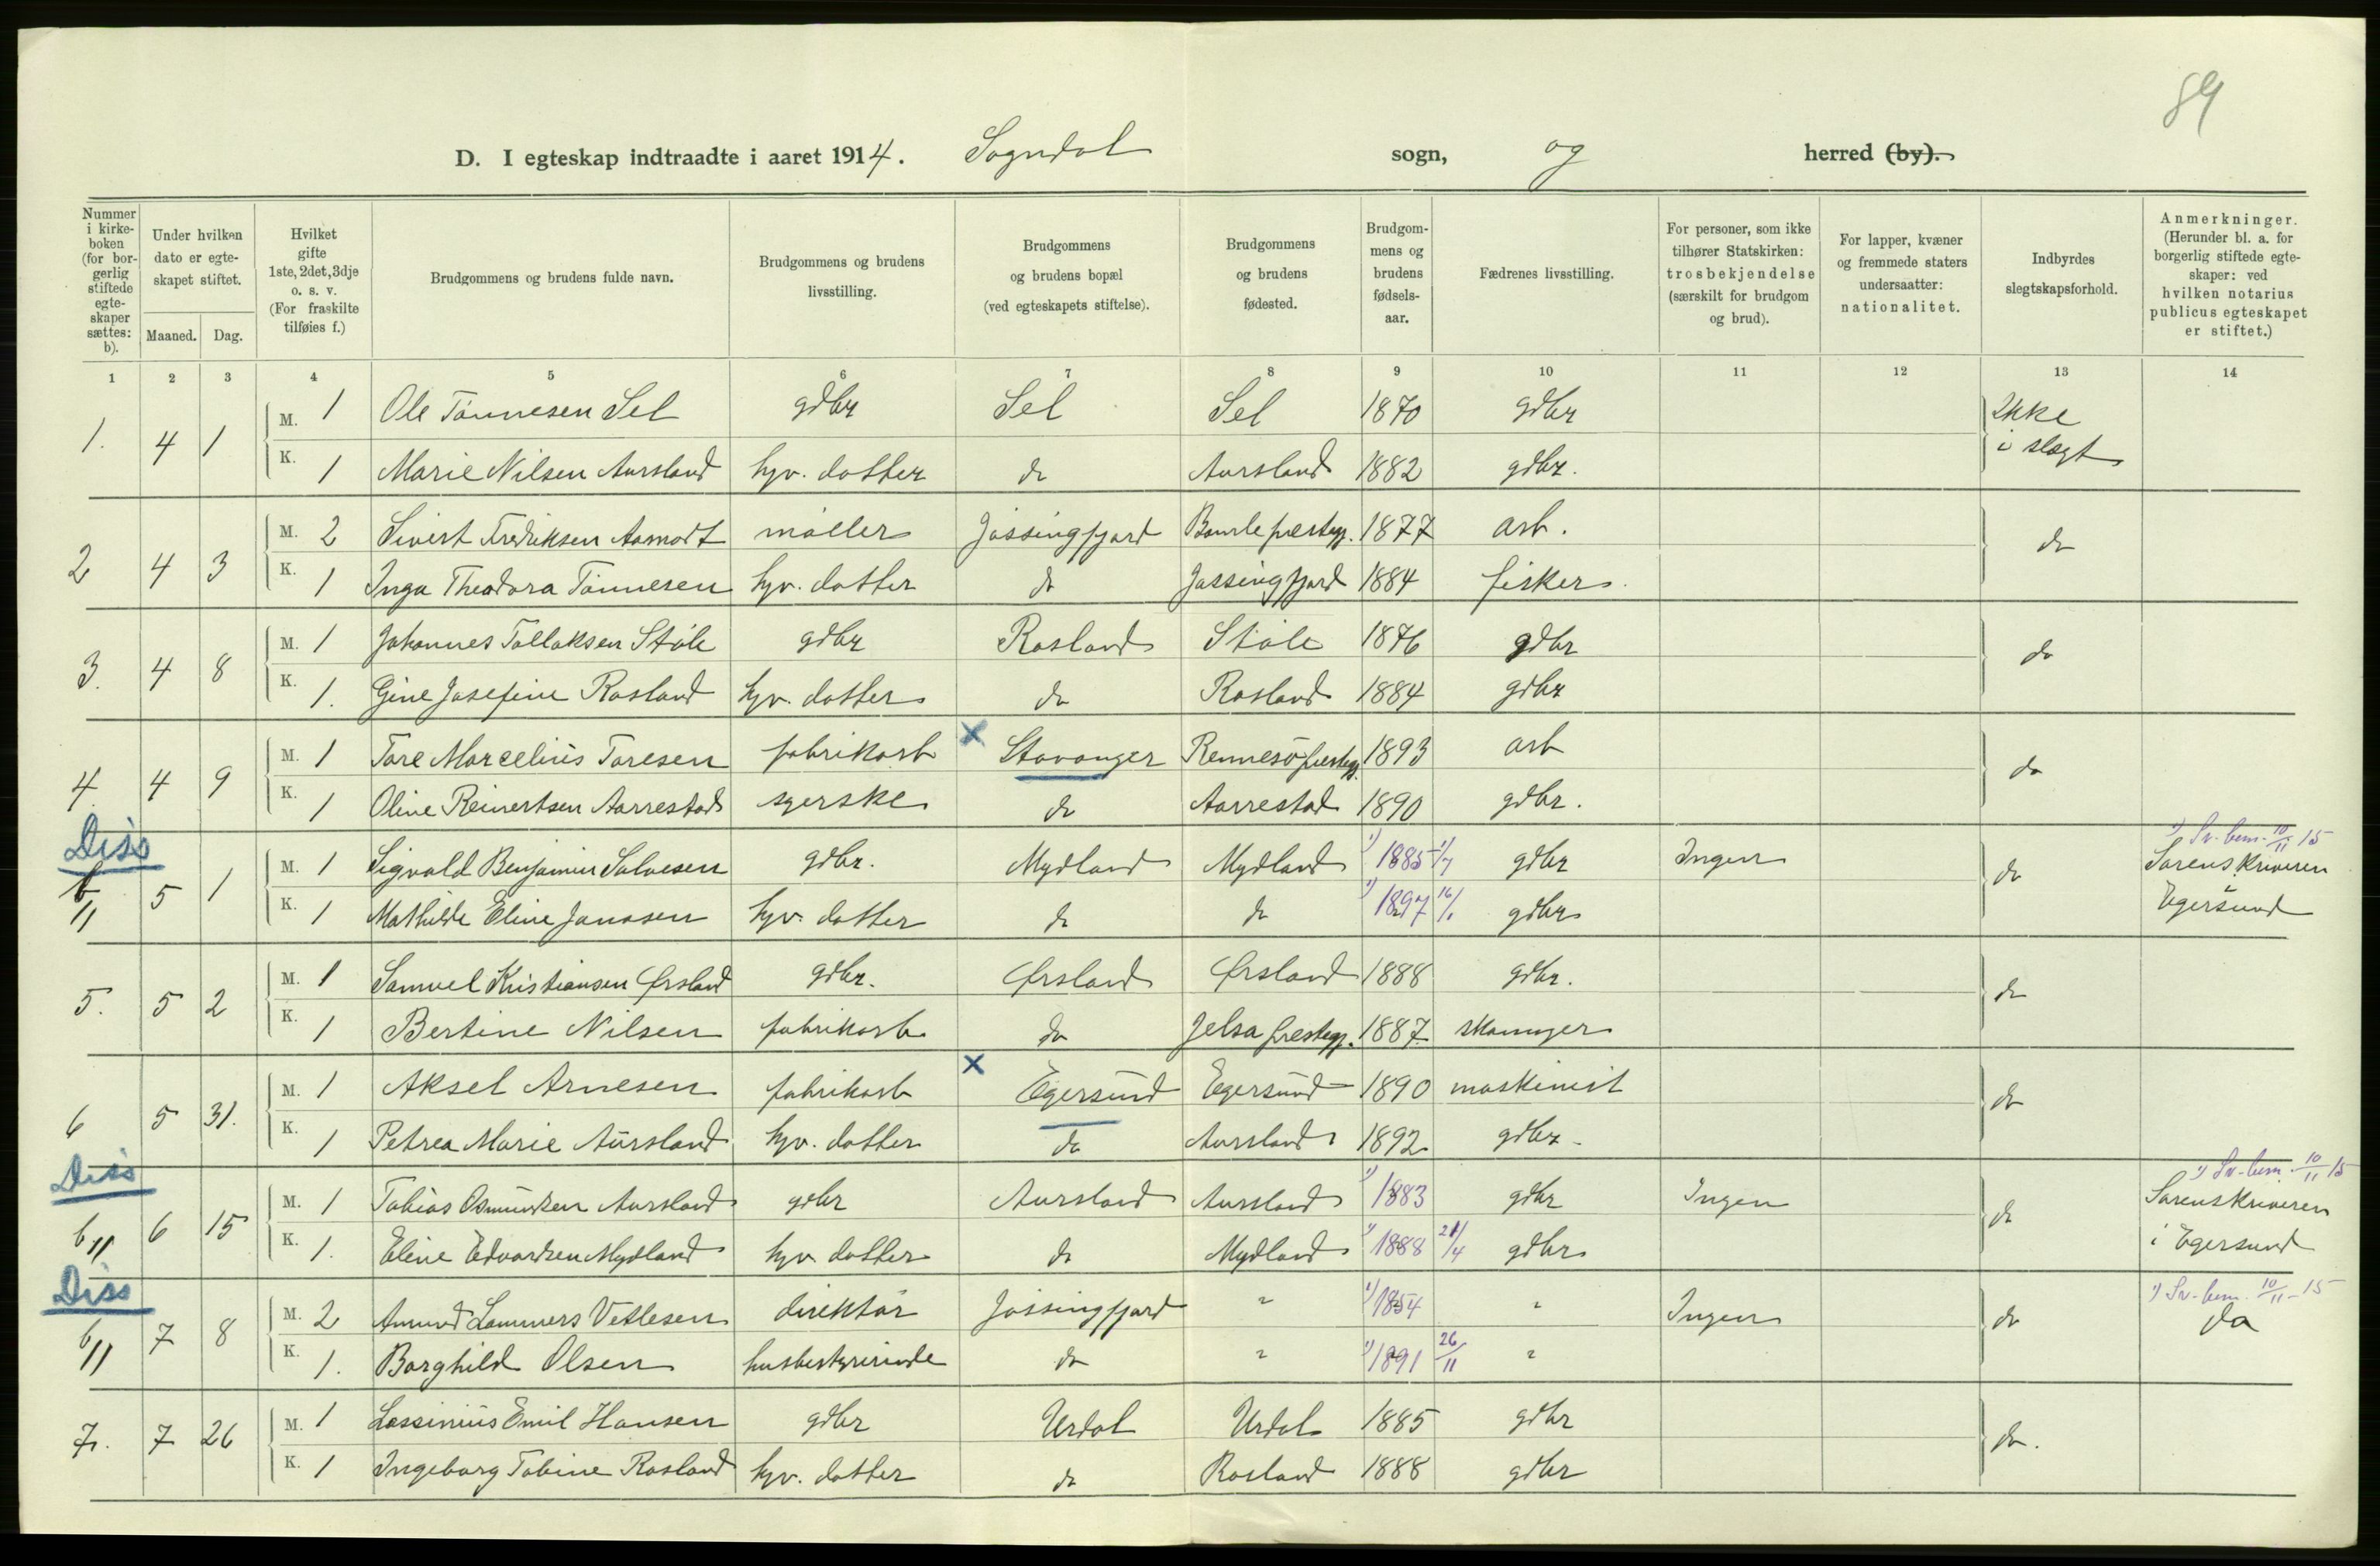 89
D. I egteskap indtraadte i aaret 1914. Sogndal sogn, og herred (by).
Nummer i kirkeboken (for borgerlig stiftede egteskaper sættes: b).
Under hvilken dato er egteskapet stiftet.
Maaned. Dag.
Hvilket gifte 1ste, 2det, 3dje o. s. v. (For fraskilte tilføies f.)
Brudgommens og brudens fulde navn.
Brudgommens og brudens livsstilling.
Brudgommens og brudens bopæl (ved egteskapets stiftelse).
Brudgommens og brudens fødested.
Brudgommens og brudens fødselsaar.
Fædrenes livsstilling.
For personer, som ikke tilhører Statskirken: trosbekjendelse (særskilt for brudgom og brud).
For lapper, kvæner og fremmede staters undersaatter: nationalitet.
Indbyrdes slegtskapsforhold.
Anmerkninger. (Herunder bl. a. for borgerlig stiftede egteskaper: ved hvilken notarius publicus egteskapet er stiftet.)
1 2 3 4 5 6 7 8 9 10 11 12 13 14
1. 4 1 M. 1 Ole Tönnesen Sel gdbr Sel Sel 1870 gdbr Ikke i slegt
K. 1 Marie Nilsen Aursland hjv. datter do Aursland 1882 gdbr.
2 4 3 M. 2 Sivert Fredriksen Aamodt möller Jössingfjord Bamle prestegj. 1877 arb. do
K. 1 Inga Theodora Tönnesen hjv. datter do Jössingfjord 1884 fisker
3. 4 8 M. 1 Johannes Tollaksen Stöle gdbr Rosland Stöle 1876 gdbr do
K. 1. Gine Josefine Rosland hjv. datter do Rosland 1884 gdbr
4. 4 9 M. 1 Tore Marcelius Toresen fabrikarb × Stavanger Rennesö prestegj. 1893 arb do
K. 1 Oline Reinertsen Aarrestad syerske do Aarrestad 1890 gdbr.
Diss
b 11 5 1 M. 1 Sigvald Benjamin Salvesen gdbr. Mydland Mydland 1) 1885 1/7 gdbr Ingen do 1) Sv. bem. 10/11 15 Sorenskriveren
K. 1 Mathilde Eline Janasen hjv. datter do do 1) 1897 16/1 gdbr Egersund
5. 5 2 M. 1 Samuel Kristiansen Ørsland gdbr. Ørsland Ørsland 1888 gdbr. do
K. 1 Bertine Nilsen fabrikarb do Jelsa prestegj. 1887 skomager
6 5 31. M. 1 Aksel Arnesen fabrikarb × Egersund Egersund 1890 maskinist do
K. 1 Petrea Marie Aursland hjv. datter do Aursland 1892 gdbr
Diss
b 11 6 15 M. 1 Tobias Osmundsen Aursland gdbr Aursland Aursland 1) 1883 gdbr Ingen do 1) Sv. bem. 10/11 15 Sorenskriveren
K. 1. Eline Edvardsen Mydland hjv datter do Mydland 1) 1888 21/4 gdbr i Egersund
Diss
b 11 7 8 M. 2 Amund Lammers Vetlesen direktör Jössingfjord " 1) 1854 " Ingen do 1) Sv. bem. 10/11 - 15 do
K. 1. Borghild Olsen husbestyrerinde do " 1) 1891 26/11 "
7. 7 26 M. 1 Lassinius Emil Hansen gdbr Urdal Urdal 1885 gdbr do.
K. 1 Ingeborg Tobine Rosland hjv. datter do Rosland 1888 gdbr